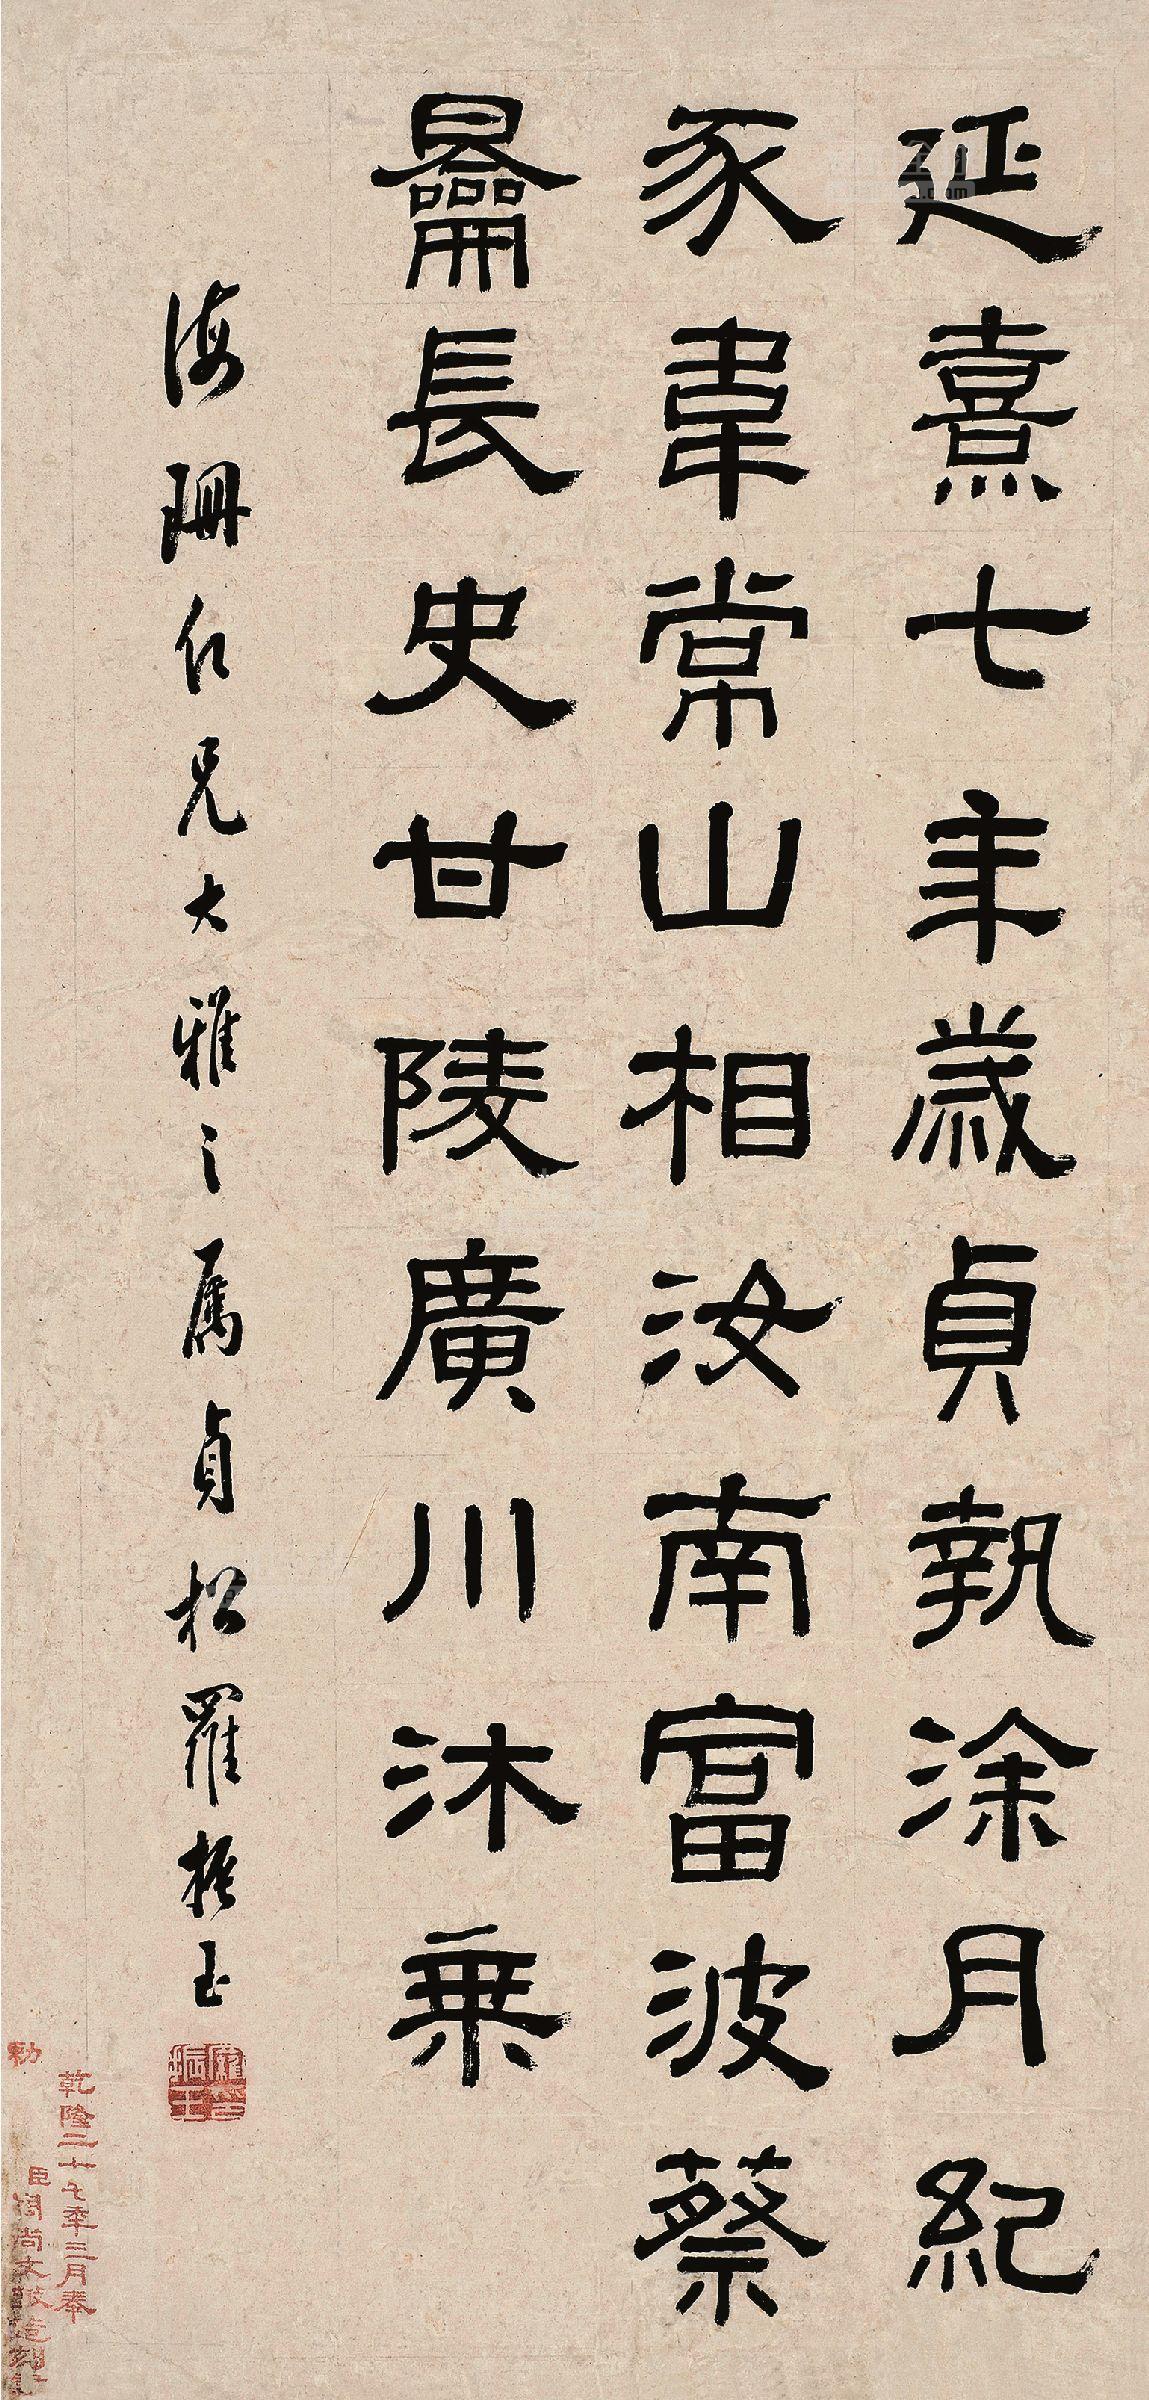 延熹七年歲貞執涂月紀
豕韋常山相汝南富波蔡
長史甘陵廣川沐乘
海珊仁兄大雅之属貞松羅振玉
羅振玉印
乾隆二十七年三月奉
勅
臣尚